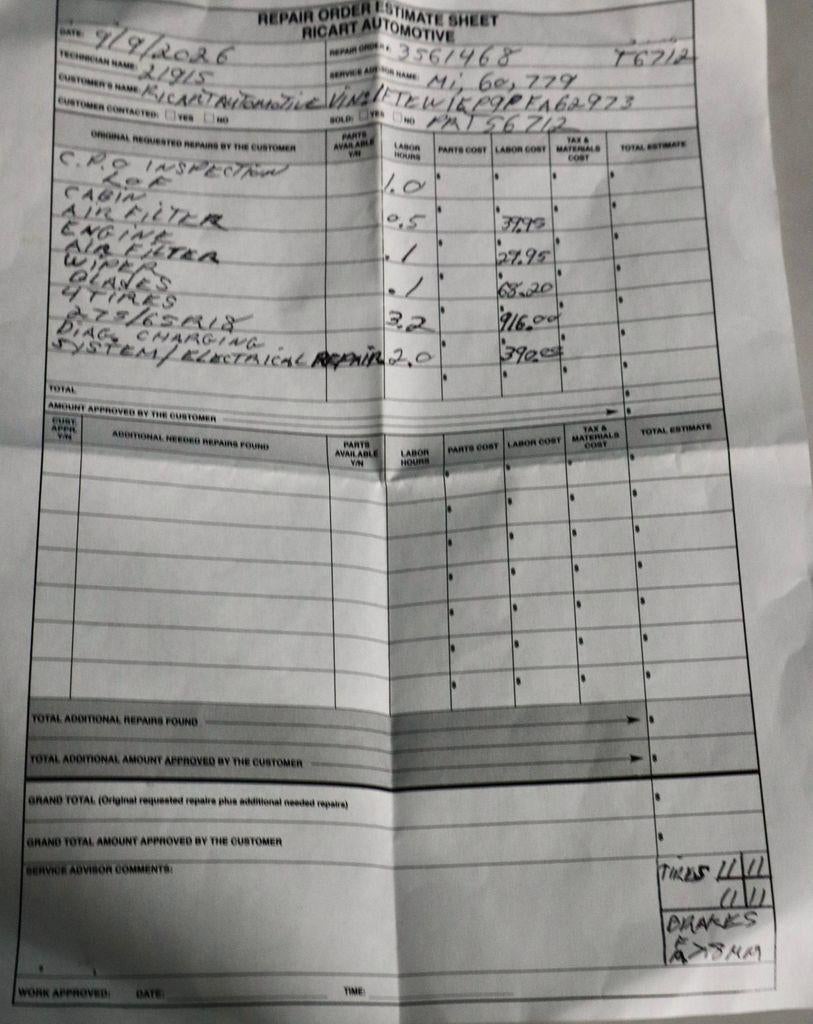 REPAIR ORDER ESTIMATE SHEET
RICART AUTOMOTIVE
DATE: 9/9/2026 REPAIR ORDER #: 3561468 T6712
TECHNICIAN NAME: 21915 SERVICE ADVISOR NAME: Mi, 60,779
CUSTOMER'S NAME: RICART AUTOMOTIVE VIN: 1FTEW1EP9PFA62973
CUSTOMER CONTACTED: YES NO SOLD: YES NO PRTS6712
ORIGINAL REQUESTED REPAIRS BY THE CUSTOMER PARTS AVAILABLE Y/N LABOR HOURS PARTS COST LABOR COST TAX & MATERIALS COST TOTAL ESTIMATE
C.P.O INSPECTION
L.O.F 1.0
CABIN
AIR FILTER 0.5 39.95
ENGINE
AIR FILTER .1 29.95
WIPER
BLADES .1 68.20
4 TIRES
275/65R18 3.2 916.00
DIAG. CHARGING
SYSTEM/ELECTRICAL REPAIR 2.0 390.00
TOTAL
AMOUNT APPROVED BY THE CUSTOMER
CUST. APPR. Y/N ADDITIONAL NEEDED REPAIRS FOUND PARTS AVAILABLE Y/N LABOR HOURS PARTS COST LABOR COST TAX & MATERIALS COST TOTAL ESTIMATE
TOTAL ADDITIONAL REPAIRS FOUND
TOTAL ADDITIONAL AMOUNT APPROVED BY THE CUSTOMER
GRAND TOTAL (Original requested repairs plus additional needed repairs)
GRAND TOTAL AMOUNT APPROVED BY THE CUSTOMER
SERVICE ADVISOR COMMENTS:
TIRES 11 11
11 11
BRAKES
F
R >8MM
WORK APPROVED: DATE: TIME: